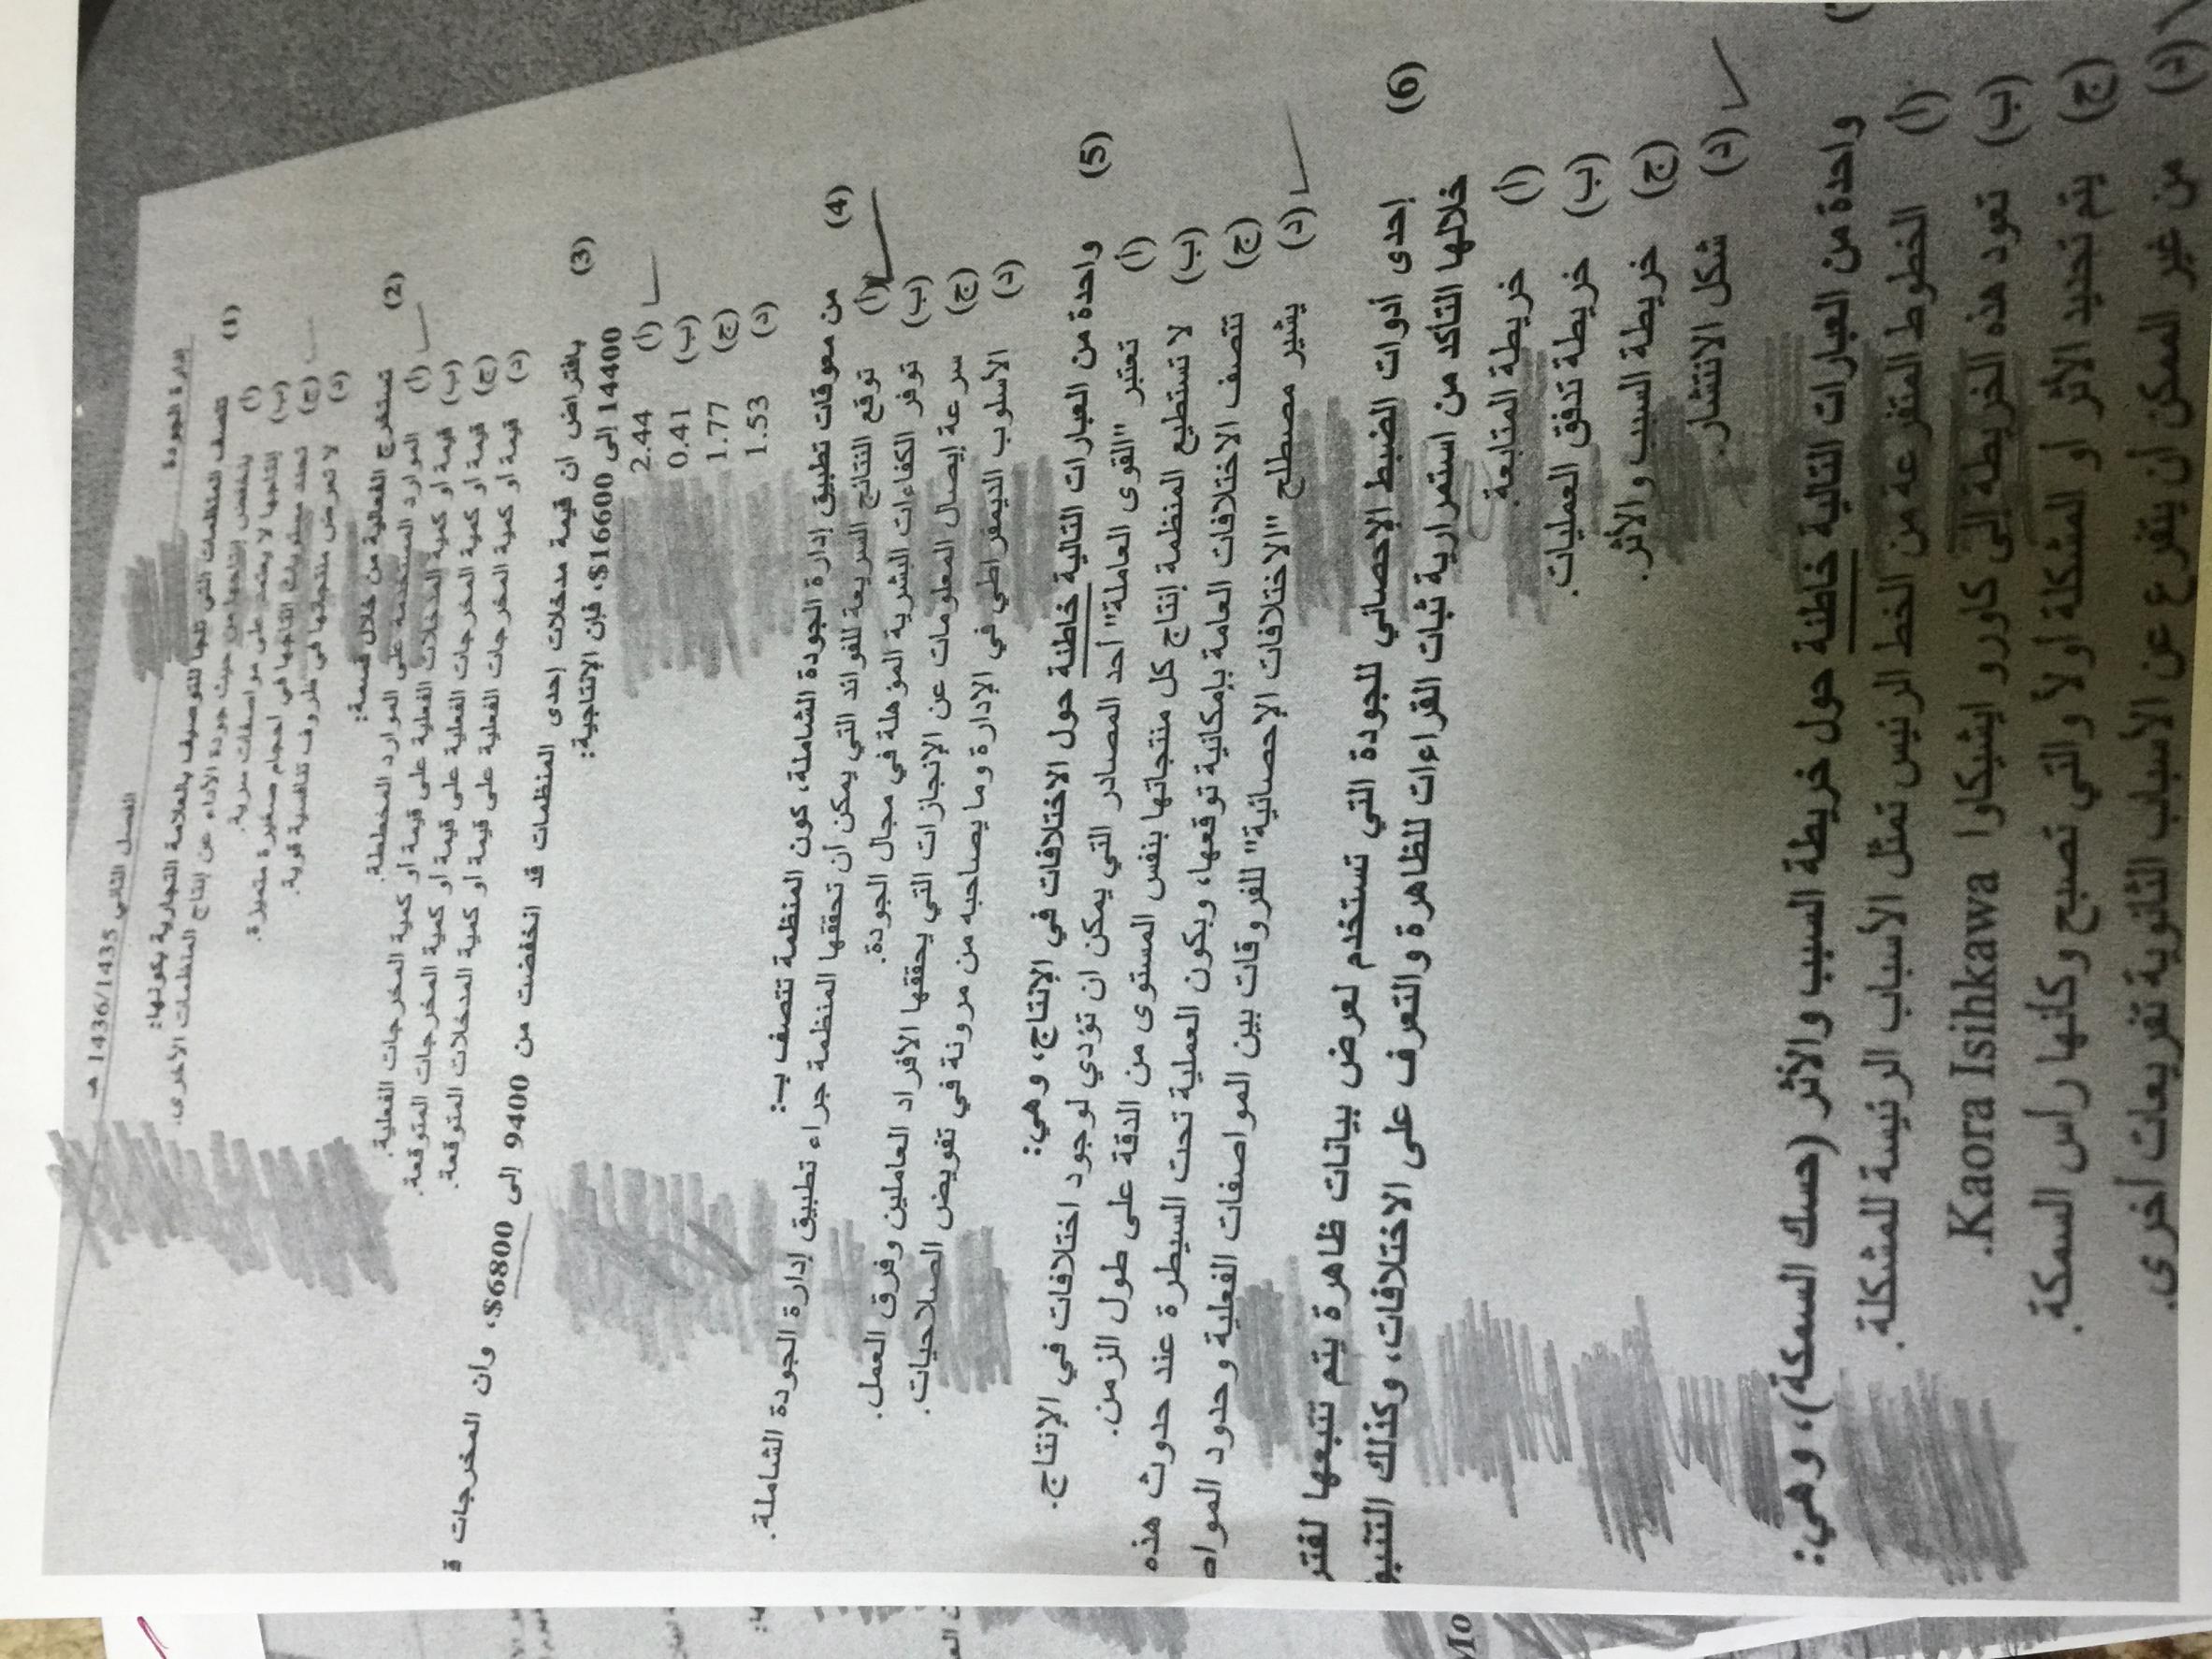 إدارة الجودة
الفصل الثاني 1436/1435 هـ
(1) تتصف المنظمات التي تلجأ للتوصيف بالعلامة التجارية بكونها:
(أ) ينخفض إنتاجها من حيث جودة الأداء عن إنتاج المنظمات الأخرى.
(ب) إنتاجها لا يعتمد على مواصفات سرية.
(ج) تحدد مستويات إنتاجها في أحجام صغيرة متميزة.
(د) لا تعرض منتجاتها في ظروف تنافسية قوية.
(2) تستخرج الفعالية من خلال قسمة:
(أ) الموارد المستخدمة على الموارد المخططة.
(ب) قيمة أو كمية المدخلات الفعلية على قيمة أو كمية المخرجات الفعلية.
(ج) قيمة أو كمية المخرجات الفعلية على قيمة أو كمية المخرجات المتوقعة.
(د) قيمة أو كمية المخرجات الفعلية على قيمة أو كمية المدخلات المتوقعة.
(3) بافتراض ان قيمة مدخلات إحدى المنظمات قد انخفضت من 9400 إلى 6800$، وان المخرجات
14400 إلى 16600$، فإن الإنتاجية:
(أ) 2.44
(ب) 0.41
(ج) 1.77
(د) 1.53
(4) من معوقات تطبيق إدارة الجودة الشاملة، كون المنظمة تتصف بـ:
(أ) توقع النتائج السريعة للفوائد التي يمكن أن تحققها المنظمة جراء تطبيق إدارة الجودة الشاملة.
(ب) توفر الكفاءات البشرية المؤهلة في مجال الجودة.
(ج) سرعة إيصال المعلومات عن الإنجازات التي يحققها الأفراد العاملين وفرق العمل.
(د) الأسلوب الديمقراطي في الإدارة وما يصاحبه من مرونة في تفويض الصلاحيات.
(5) واحدة من العبارات التالية خاطئة حول الاختلافات في الإنتاج، وهي:
(أ) تعتبر "القوى العاملة" أحد المصادر التي يمكن ان تؤدي لوجود اختلافات في الإنتاج.
(ب) لا تستطيع المنظمة إنتاج كل منتجاتها بنفس المستوى من الدقة على طول الزمن.
(ج) تتصف الاختلافات العامة بإمكانية توقعها، ويكون العملية تحت السيطرة عند حدوث هذه
(د) يشير مصطلح "الاختلافات الإحصائية" للفروقات بين المواصفات الفعلية وحدود المواد
(6) إحدى أدوات الضبط الإحصائي للجودة التي تستخدم لعرض بيانات ظاهرة يتم تتبعها لفتر
خلالها التأكد من استمرارية ثبات القراءات للظاهرة والتعرف على الاختلافات، وكذلك التنبؤ
(أ) خريطة المتابعة.
(ب) خريطة تدفق العمليات.
(ج) خريطة السبب والأثر.
(د) شكل الانتشار.
واحدة من العبارات التالية خاطئة حول خريطة السبب والأثر (حسك السمكة)، وهي:
(أ) الخطوط المتفرعة من الخط الرئيس تمثل الأسباب الرئيسة للمشكلة.
(ب) تعود هذه الخريطة إلى كاورو ايشيكاوا Kaora Isihkawa.
(ج) يتم تحديد الأثر أو المشكلة اولاً والتي تصبح وكأنها رأس السمكة.
(د) من غير الممكن أن يتفرع عن الأسباب الثانوية تفريعات أخرى.